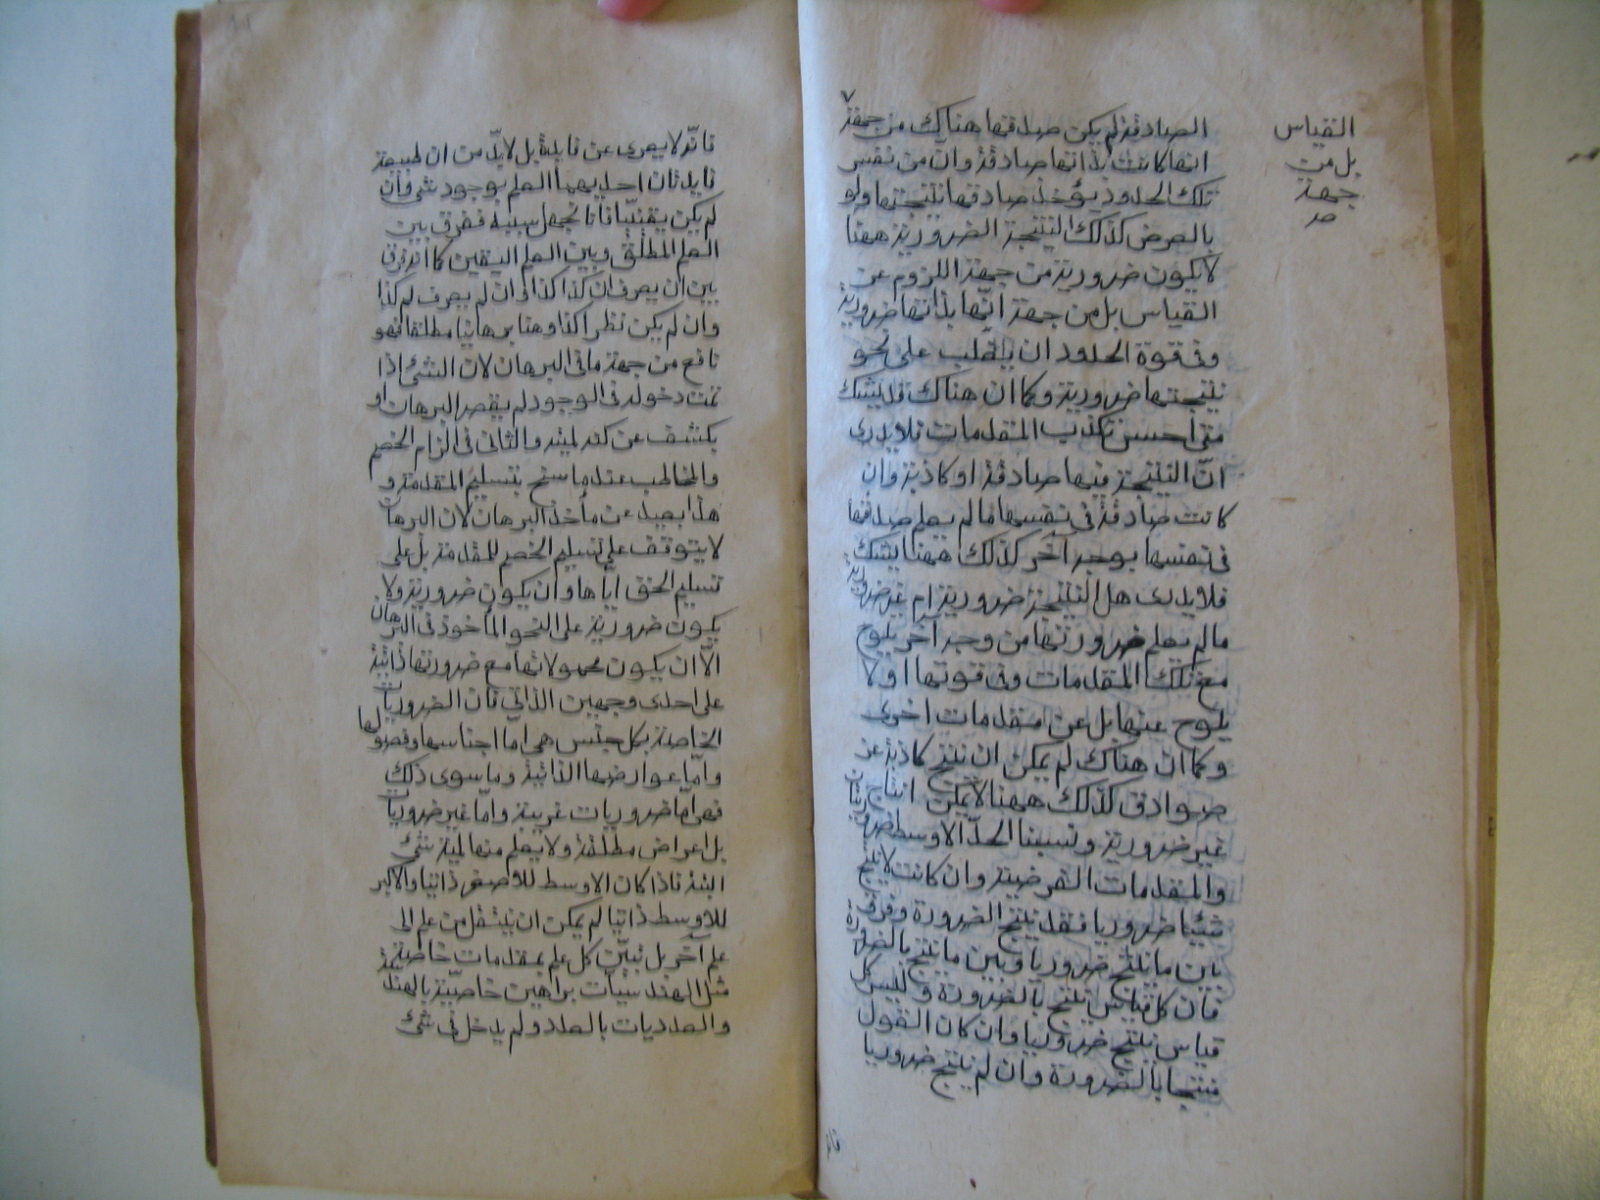 الصادقة لم يكن صدقها هناك من جهة
القياس
بل من
جهة
صح
انها كانت لذاتها صادقة وان من نفس
تلك الحدود يؤخذ صادقها نتيجتها ولو
بالعرض كذلك النتيجة الضرورية ههنا
لا يكون ضرورية من جهة اللزوم عن
القياس بل من جهة انّها بذاتها ضرورية
وفى قوة الحدود ان ينقلب على نحو
نتيجتها ضرورية وكما ان هناك قد يشك
متى احسن بكذب المقدمات فلا يدرى
انّ النتيجة فيها صادقة او كاذبة وان
كانت صادقة فى نفسها ما لم يعلم صدقها
فى نفسها بوجه آخر كذلك ههنا يشك
فلا يدرى هل النتيجة ضرورية ام غير ضرورية
ما لم يعلم ضرورتها من وجه آخر يلوح
مع تلك المقدمات وفى قوتها او لا
يلوح عنها بل عن مقدمات اخرى
وكما ان هناك لم يمكن ان ينتج كاذبة عن
صوادق كذلك ههنا لا يمكن انتاج
غير ضرورية ونسبنا الحدّ الاوسط ضروريتان
والمقدمات القرضية وان كانت لا ينتج
شيئا ضروريا فقد ينتج الضرورة وفرق
بين ما ينتج ضروريا وبين ما ينتج بالضرورة
فان كل قياس ينتج بالضرورة وليس كل
قياس ينتج ضروريا وان كان القول
منتجا بالضرورة وان لم ينتج ضروريا
فانّه لا يعرى عن فايدة بل لا بدّ من ان طبيعة
فايدتان احديهما العلم بوجود شئ وان
لم يكن يقينيّا فانا نجهل سببه ففرق بين
العلم المطلق وبين العلم اليقين كما انه فرق
بين ان يعرف ان كذا كذا وان لم يعرف لم كذا
وان لم يكن نظرا كذا وهنا برهانيا مطلقا فهو
نافع من جهة ما فى البرهان لان الشئ اذا
تمت دخوله فى الوجود لم يقصر البرهان او
يكشف عن كنه لميته والثانى فى الزام الخصم
والمخاطب عند ما سنح بتسليم المقدمة و
هذا بعيد عن مأخذ البرهان لان البرهان
لا يتوقف على تسليم الخصم للمقدمة بل على
تسليم الحق اياها وان يكون ضرورية ولا
يكون ضرورية على النحو المأخوذ فى البرهان
الاّ ان يكون محمولاتها مع ضرورتها ذاتية
على احدى وجهين الذاتى فان الضروريات
الخاصة بكل جنس هى امّا اجناسها وفصولها
وامّا عوارضها الذاتية وما سوى ذلك
فهى امّا ضروريات غريبة وامّا غير ضروريات
بل اعراض مطلقة ولا يعلم منها لمية شئ
البتة فاذا كان الاوسط للاصغر ذاتيا والاكبر
للاوسط ذاتيا لم يمكن ان ينتقل من علم الى
علم آخر بل تبيّن كل علم بمقدمات خاصية
مثل الهندسيّات براهين خاصيّة بالهندسة
والعدديات بالعدد ولم يدخل فى شئ